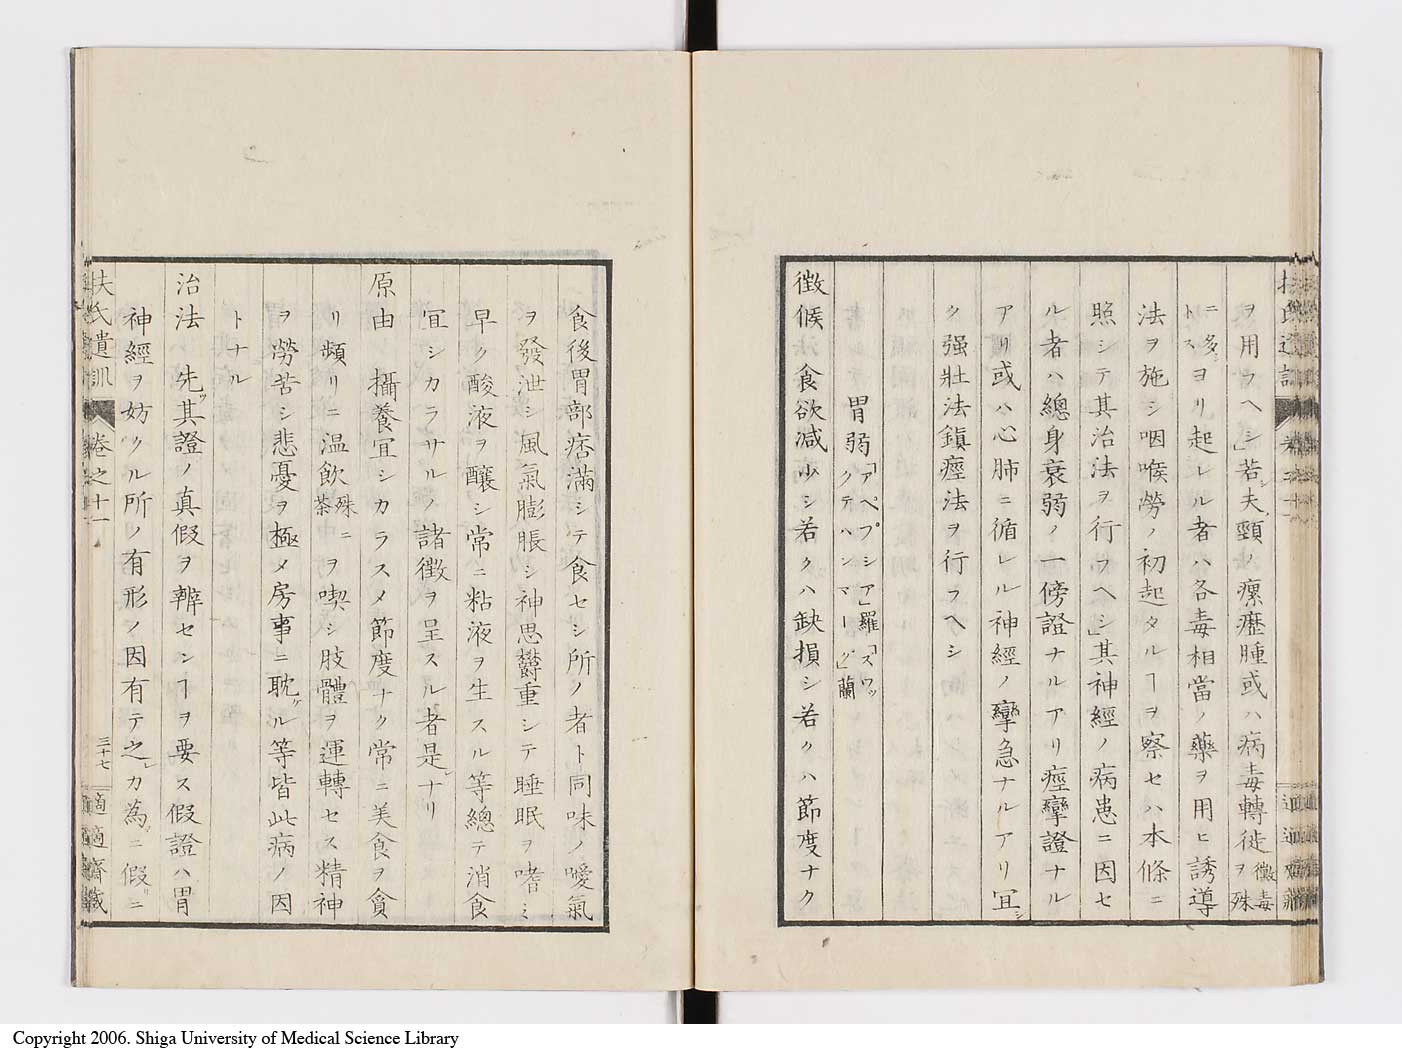 ヲ用フヘシ」若シ夫頸ノ瘰癧腫或ハ病毒轉徙ヲ黴毒殊
ニ多スヨリ起レル者ハ各毒相當ノ藥ヲ用ヒ誘導
法ヲ施シ咽喉勞ノ初起タルヿヲ察セハ本條ニ
照シテ其治法ヲ行フヘシ」其神經ノ病患ニ因セ
ル者ハ總身衰弱ノ一傍證ナルアリ痙攣證ナル
アリ或ハ心肺ニ循レル神經ノ攣急ナルアリ宜シ
ク强壯法鎭痙法ヲ行フヘシ
胃弱「アペプシア」羅「スワッククテハンマーグ」蘭
徴候食欲减少シ若クハ缺損シ若クハ節度ナク
食後胃部痞滿シテ食セシ所ノ者ト同味ノ噯氣
ヲ發泄シ風氣膨脹シ神思欝重シテ睡眠ヲ嗜ミ
早ク酸液ヲ釀シ常ニ粘液ヲ生スル等總テ消食
宜シカラサルノ諸徴ヲ呈スル者是レナリ
原由 攝養宜シカラスメ節度ナク常ニ美食ヲ貪
リ頻リニ温飲殊ニ茶ヲ喫シ肢體ヲ運轉セス精神
ヲ勞苦シ悲憂ヲ極メ房事ニ耽ル等皆此病ノ因
トナル
治法 先ッ其證ノ真假ヲ辨センヿヲ要ス假證ハ胃
神經ヲ妨クル所ノ有形ノ因有テ之レカ為ニ假ニ
扶氏遺訓 卷之十一 三十七 適適齋藏
Copyright 2006. Shiga University of Medical Science Library